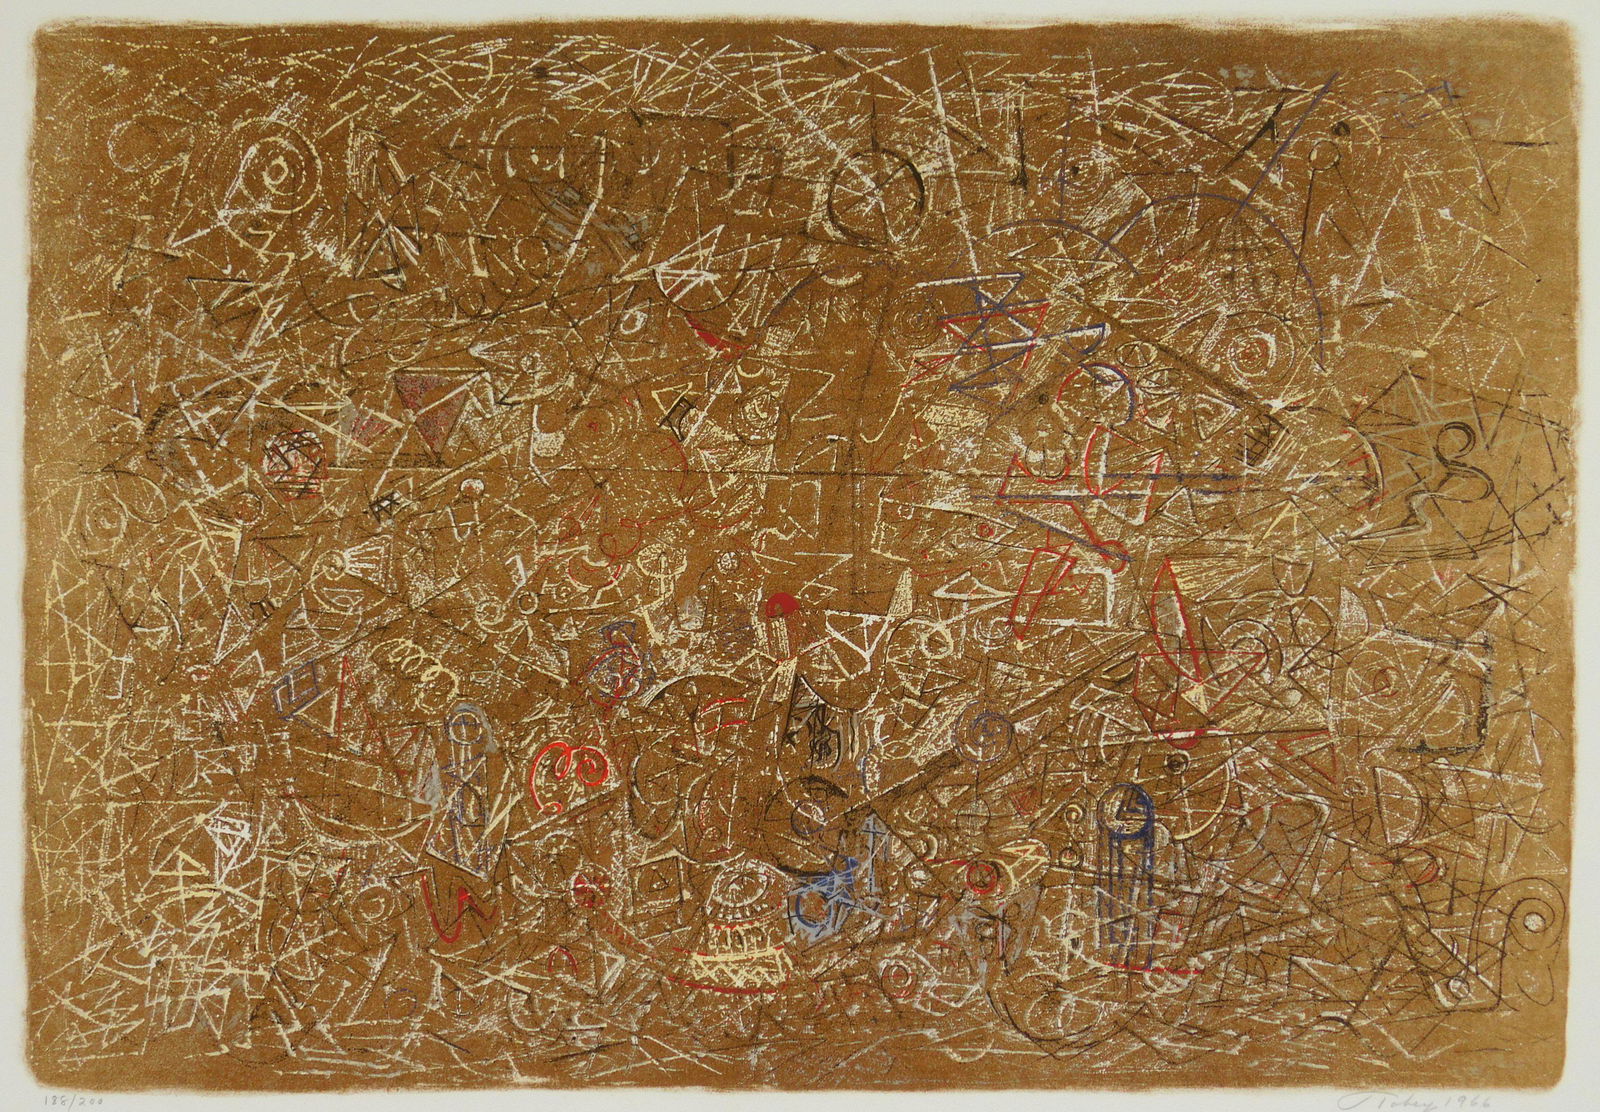 188/200
Tobey 1966